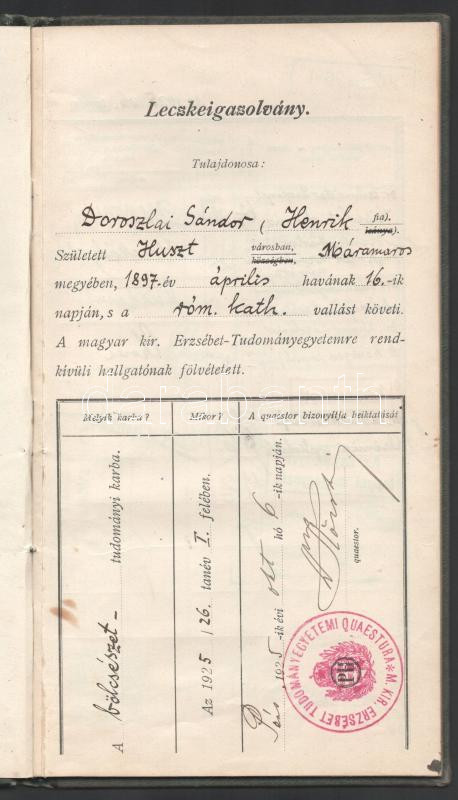 Leczkeigazolvány.
Tulajdonosa:
Doroszlai Sándor, (Henrik fia).
leánya).
Született Huszt városban, Máramaros
községben,
megyében, 1897.-év április havának 16.-ik
napján, s a róm. kath. vallást követi.
A magyar kir. Erzsébet-Tudományegyetemre rend-
kívüli hallgatónak fölvétetett.
Melyik karba?
Mikor?
A quaestor bizonyítja beiktatását
A bölcsészet- tudományi karba.
Az 1925/26. tanév I. felében.
Pécs, 1925-ik évi okt hó 6-ik napján.
quaestor.
M. KIR. ERZSÉBET TUDOMÁNYEGYETEMI QUAESTURA *
darabanth